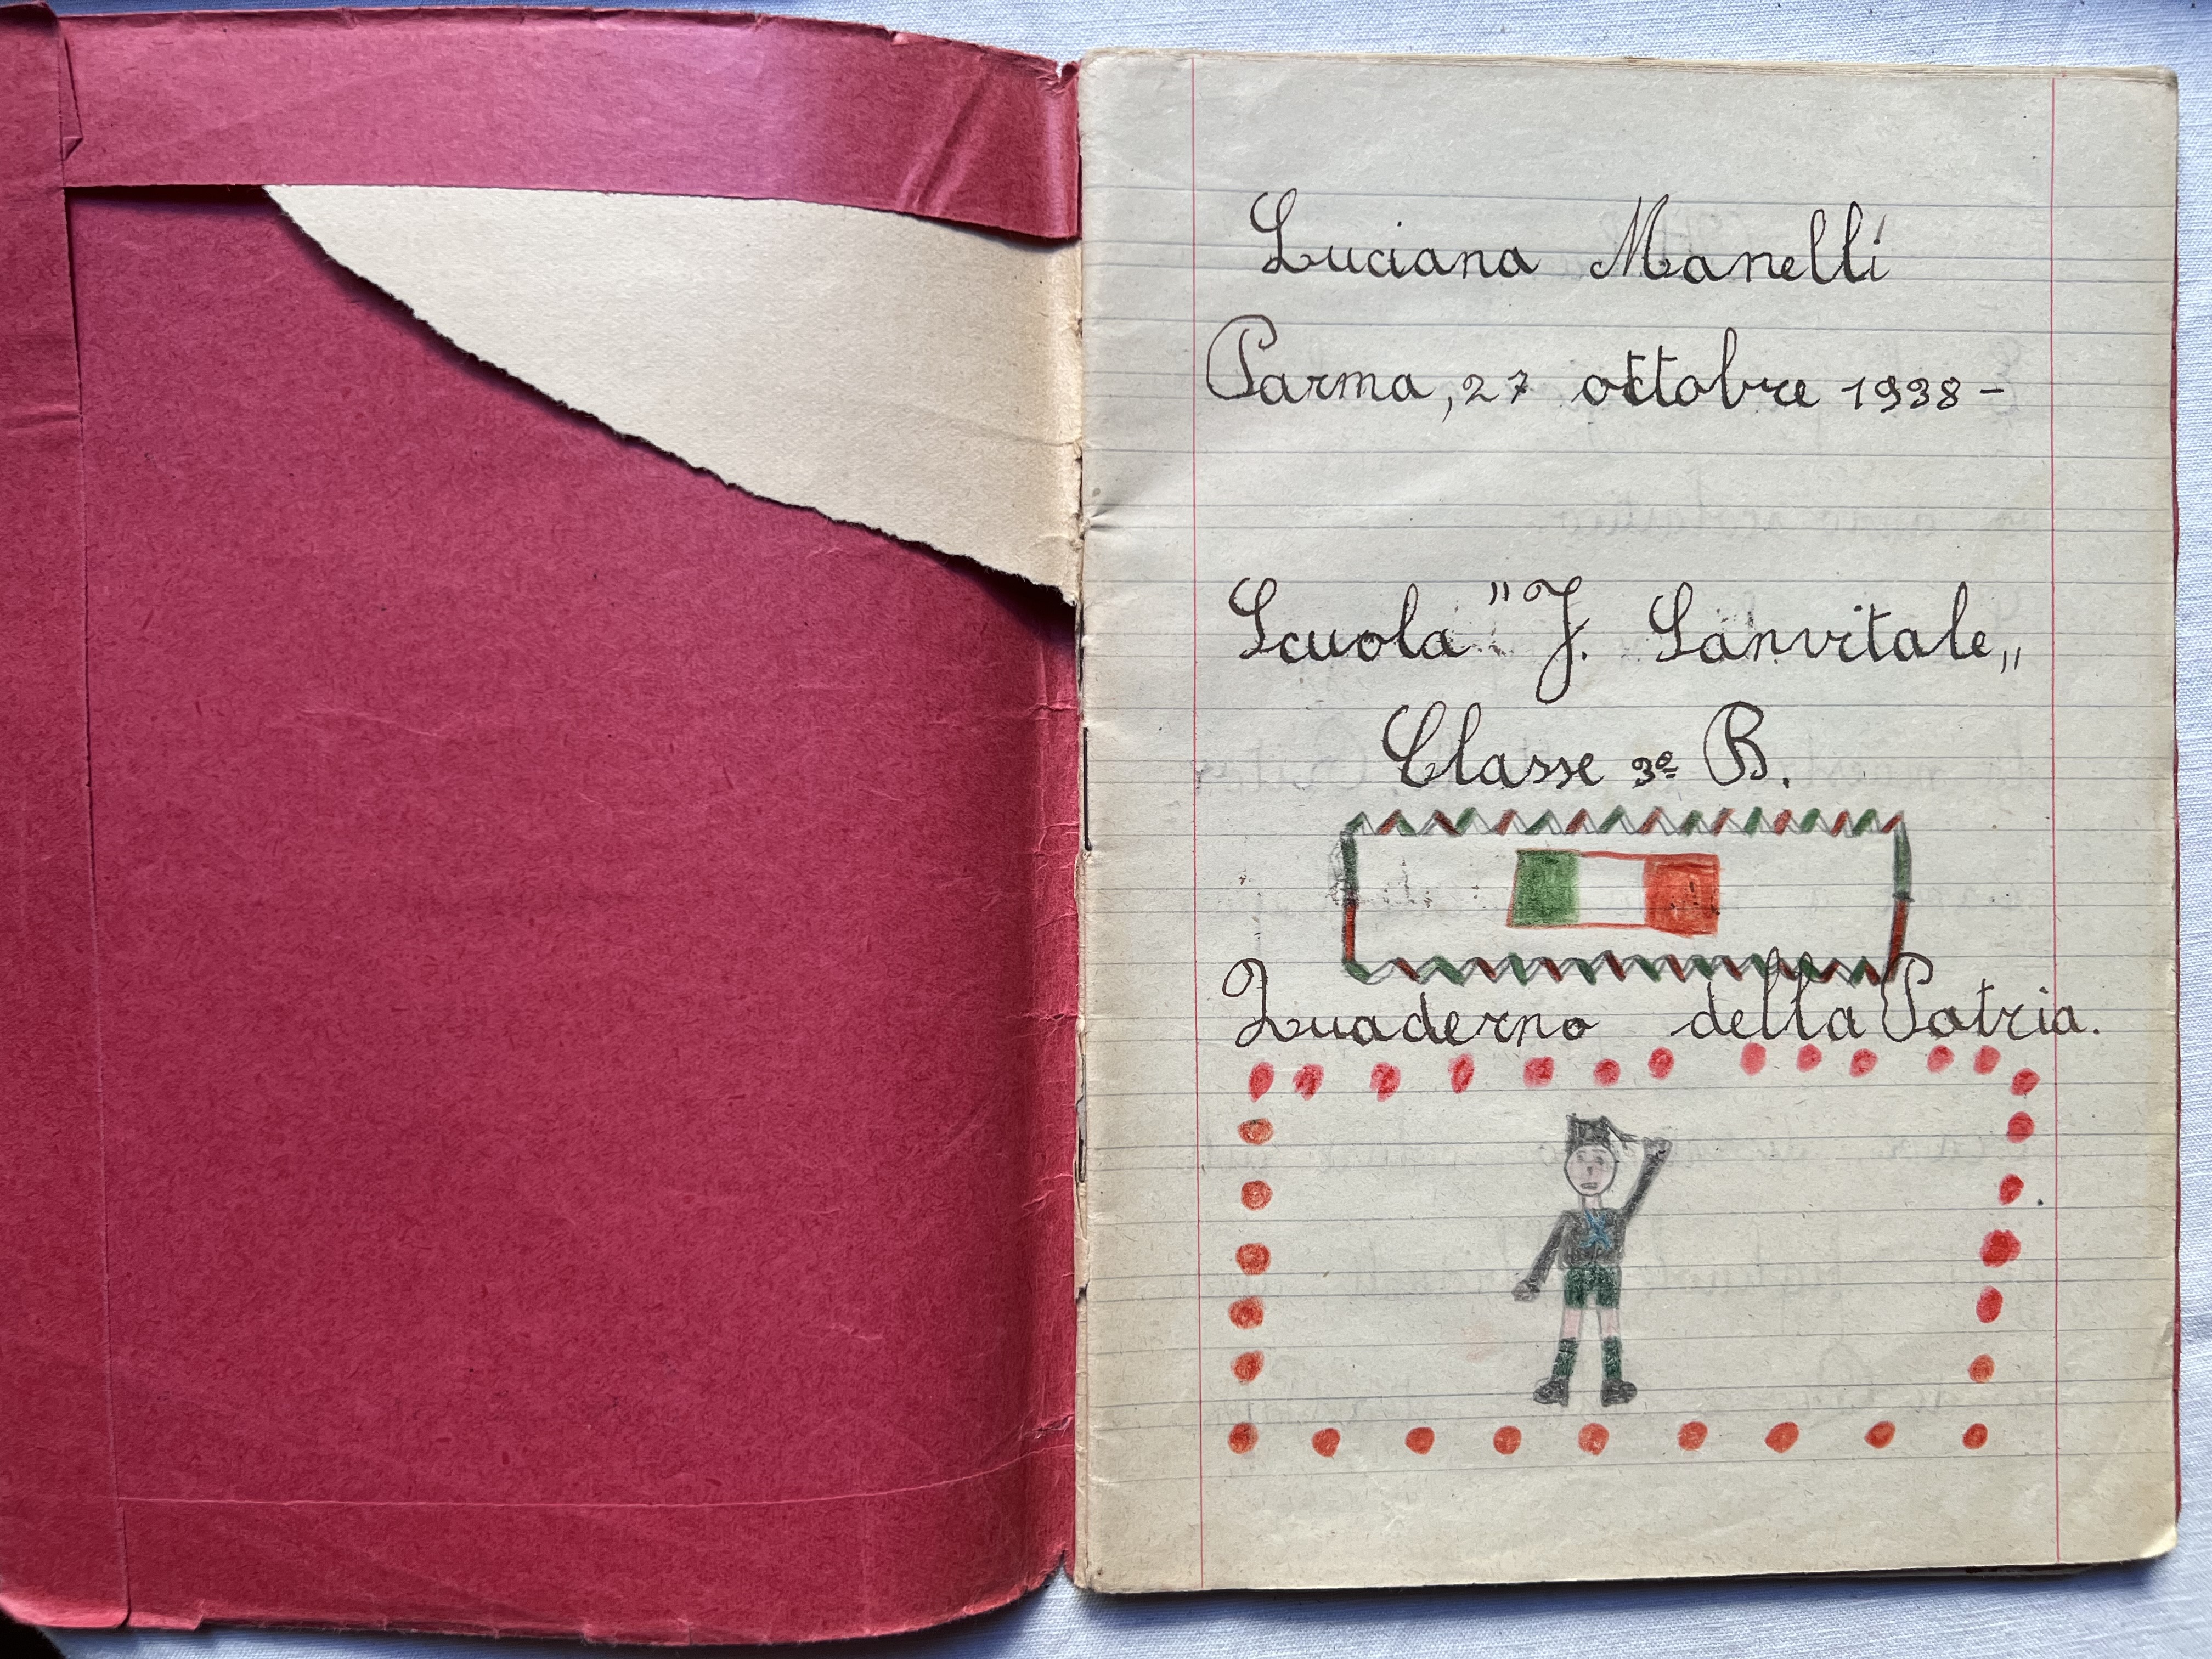 Luciana Manelli
Parma, 27 ottobre 1938 -
Scuola "J. Sanvitale„
Classe 3ª B.
Quaderno della Patria.